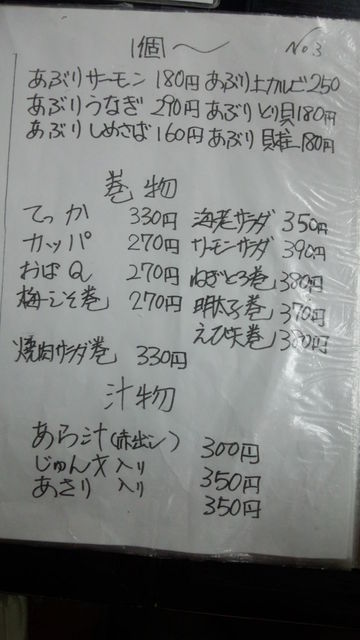 1個〜 No3
あぶりサーモン 180円 あぶり上カルビ 250
あぶりうなぎ 290円 あぶりとり貝 180円
あぶりしめさば 160円 あぶり貝柱 180円
巻物
てっか 330円 海老サラダ 350円
カッパ 270円 サーモンサラダ 390円
おばQ 270円 ねぎとろ巻 380円
梅しそ巻 270円 明太子巻 370円
えび天巻 380円
焼肉サラダ巻 330円
汁物
あら汁(赤出し) 300円
じゅん才入り 350円
あさり入り 350円